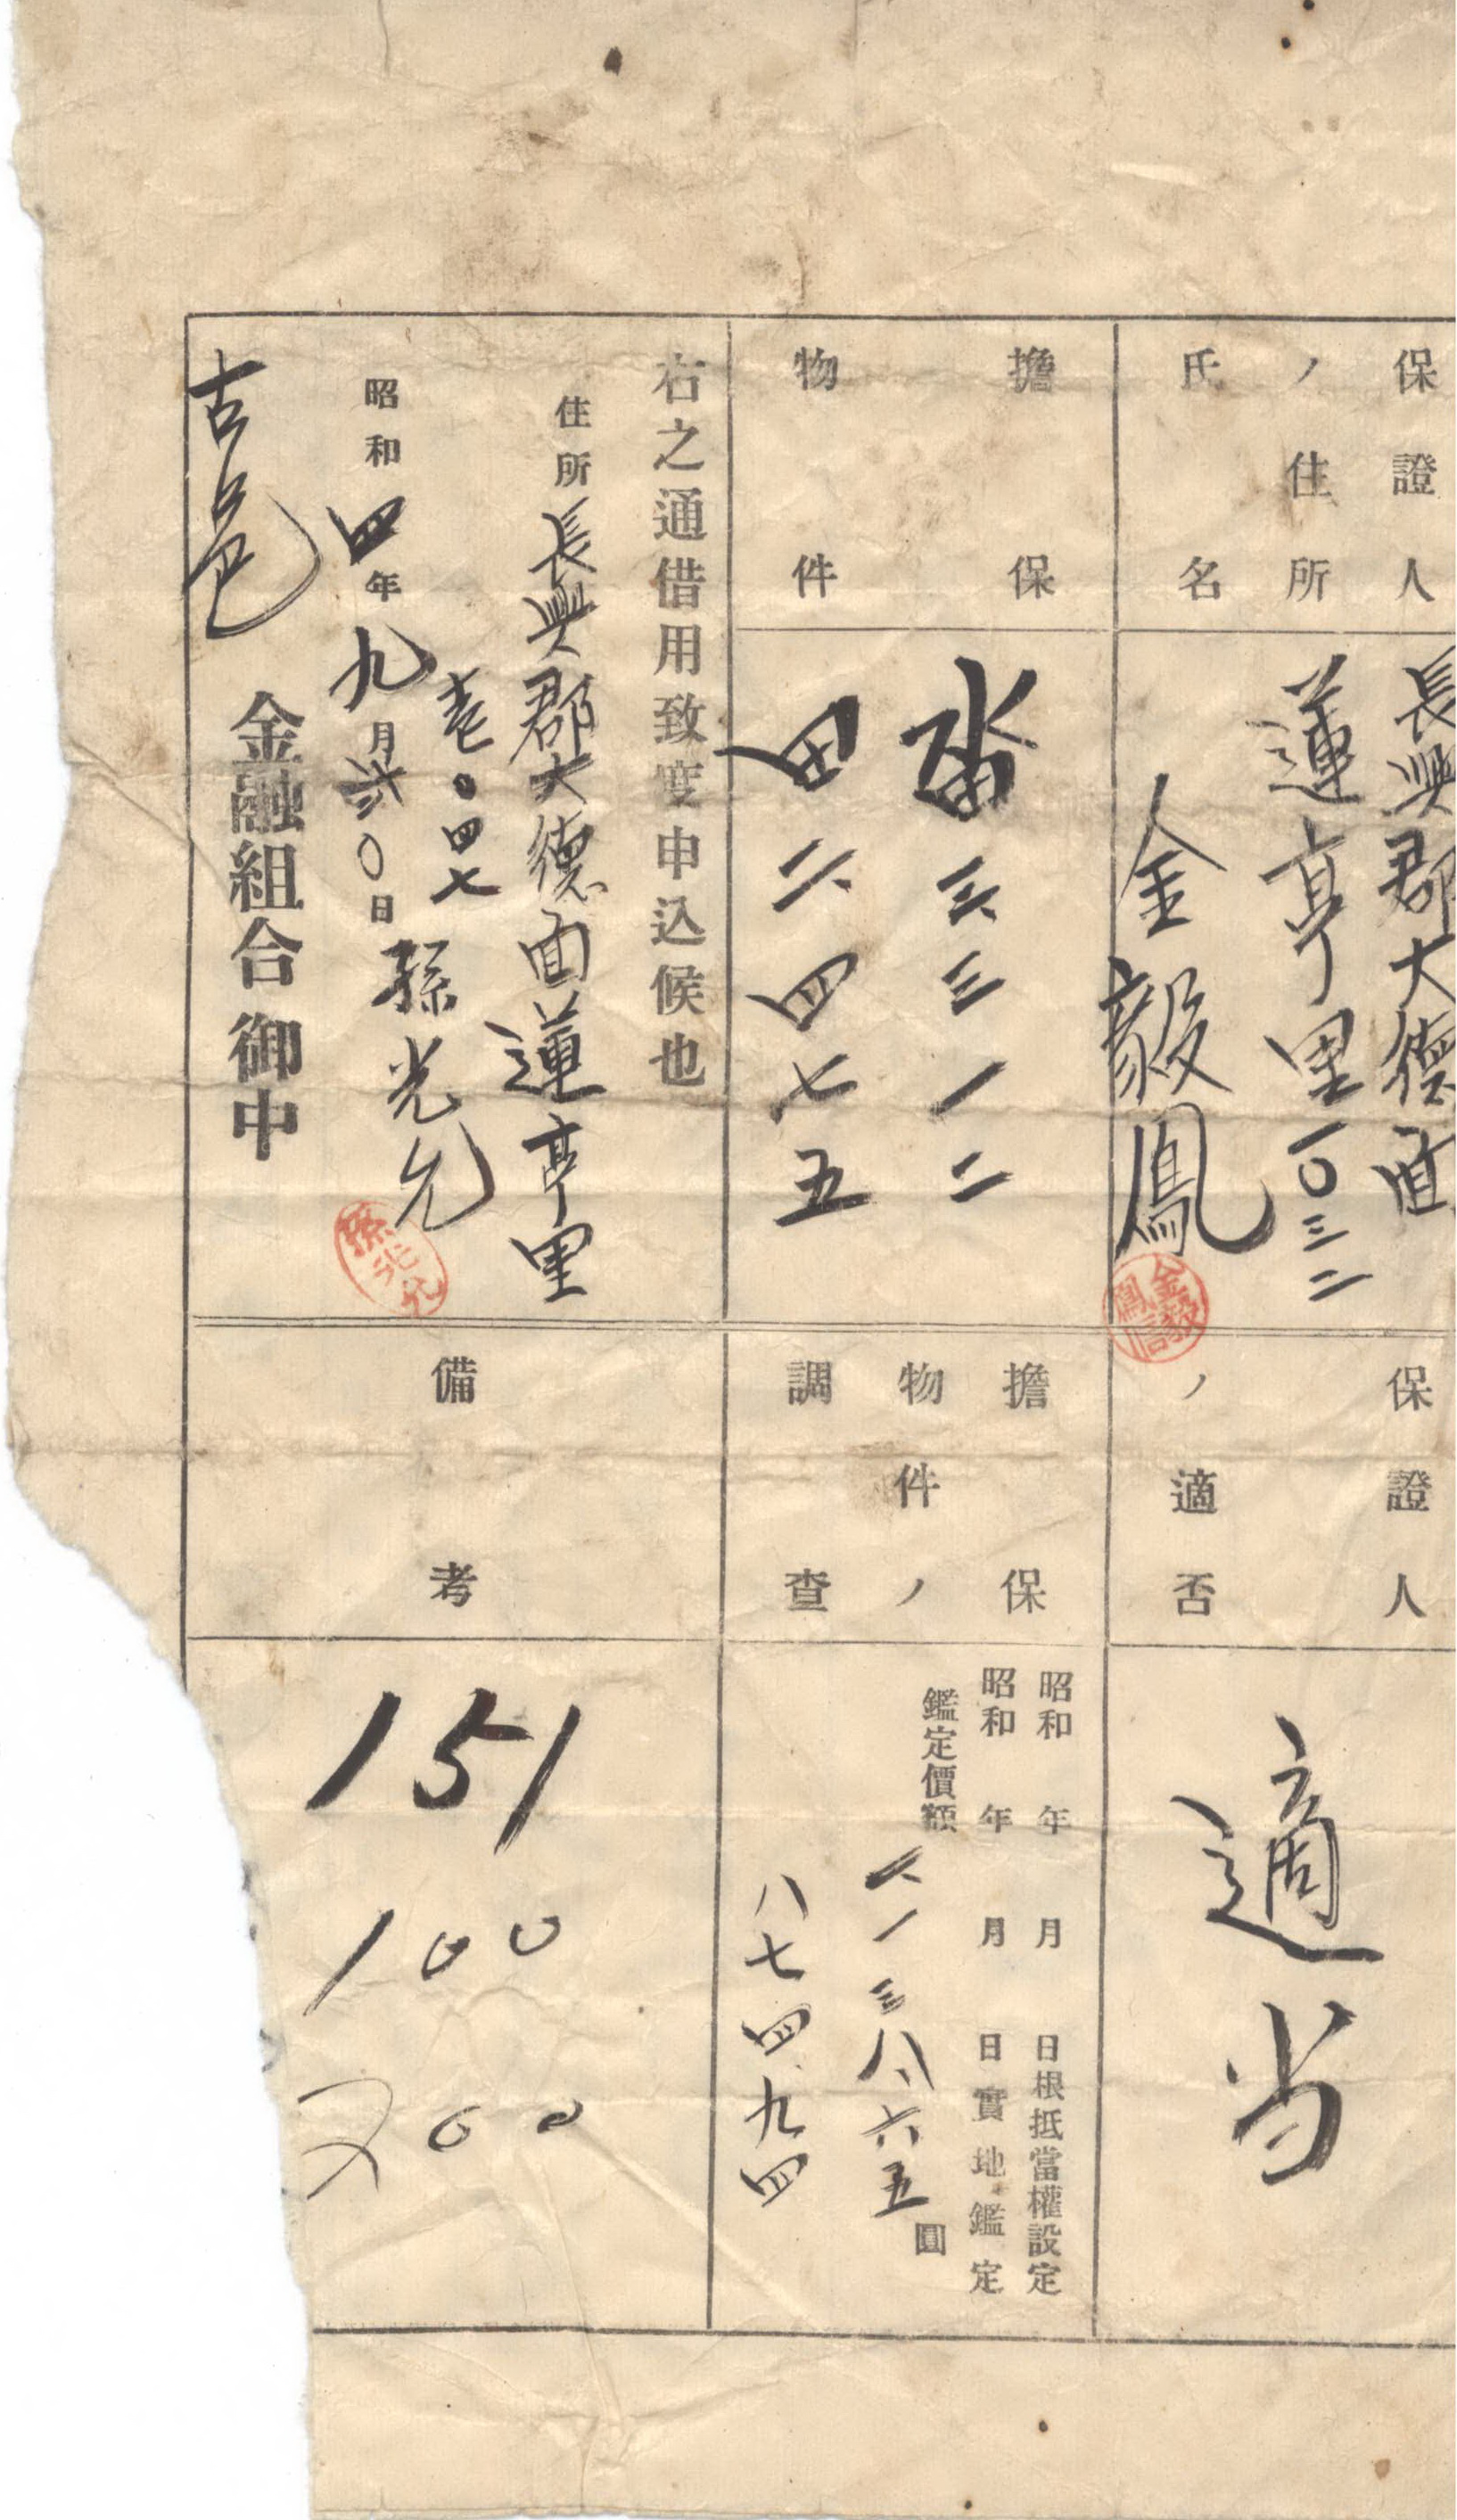 保證人
ノ住所
氏名
長興郡大德面
蓮亭里一〇三二
金毅鳳
擔保
物件
畓六三一二
田六四七五
右之通借用致度申込候也
住所長興郡大德面蓮亭里
壱〇四七
昭和四年九月弐〇日
孫光允
古邑金融組合御中
保證人
ノ適否
適当
擔保
物件ノ
調查
昭和年月日根抵當權設定
昭和年月日實地鑑定
鑑定價額圓
六一三八、六五
八七四、九四
備考
151
100
200